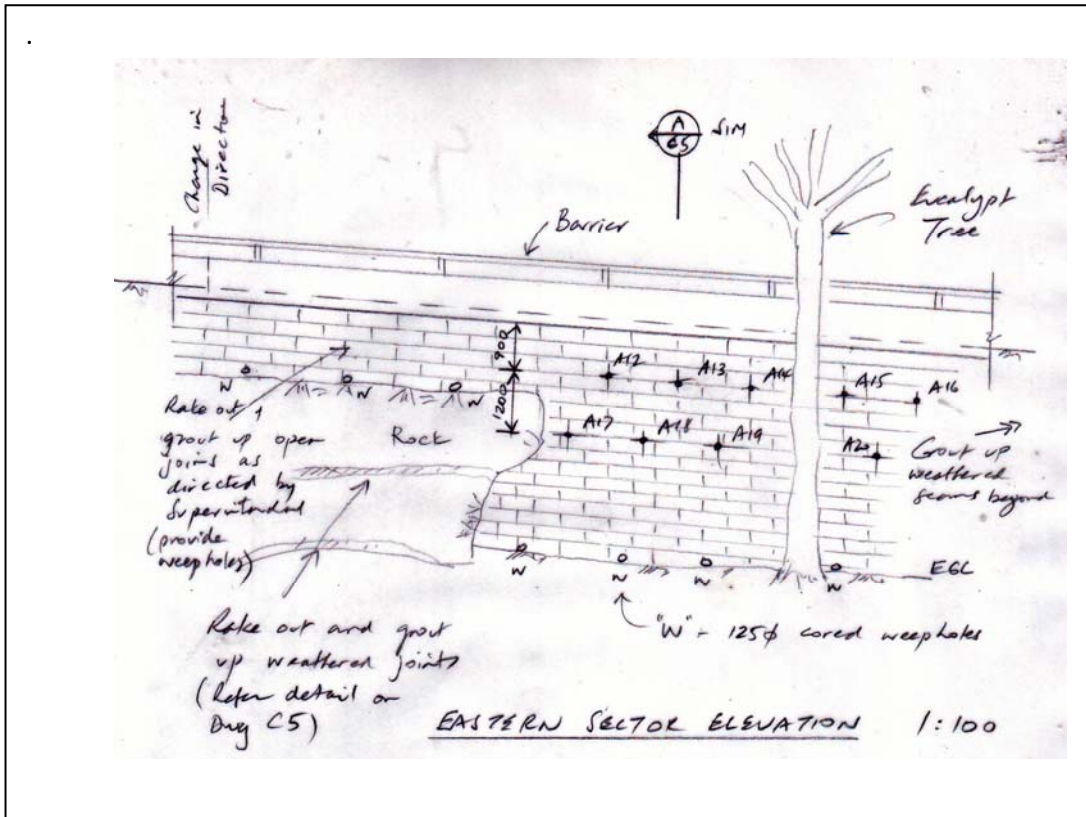 .
Change in
Direction
A
C5
SIM
Barrier
Eucalypt
Tree
900
1200
A12
A13
A14
A15
A16
A17
A18
A19
A20
W
W
W
Rock
Rake out +
grout up open
joins as
directed by
Superintendant
(provide
weepholes)
Grout up
weathered
seams beyond
W
W
W
W
EGL
"W" - 125ϕ cored weepholes
Rake out and grout
up weathered joints
(Refer detail on
Dwg C5)
EASTERN SECTOR ELEVATION 1:100